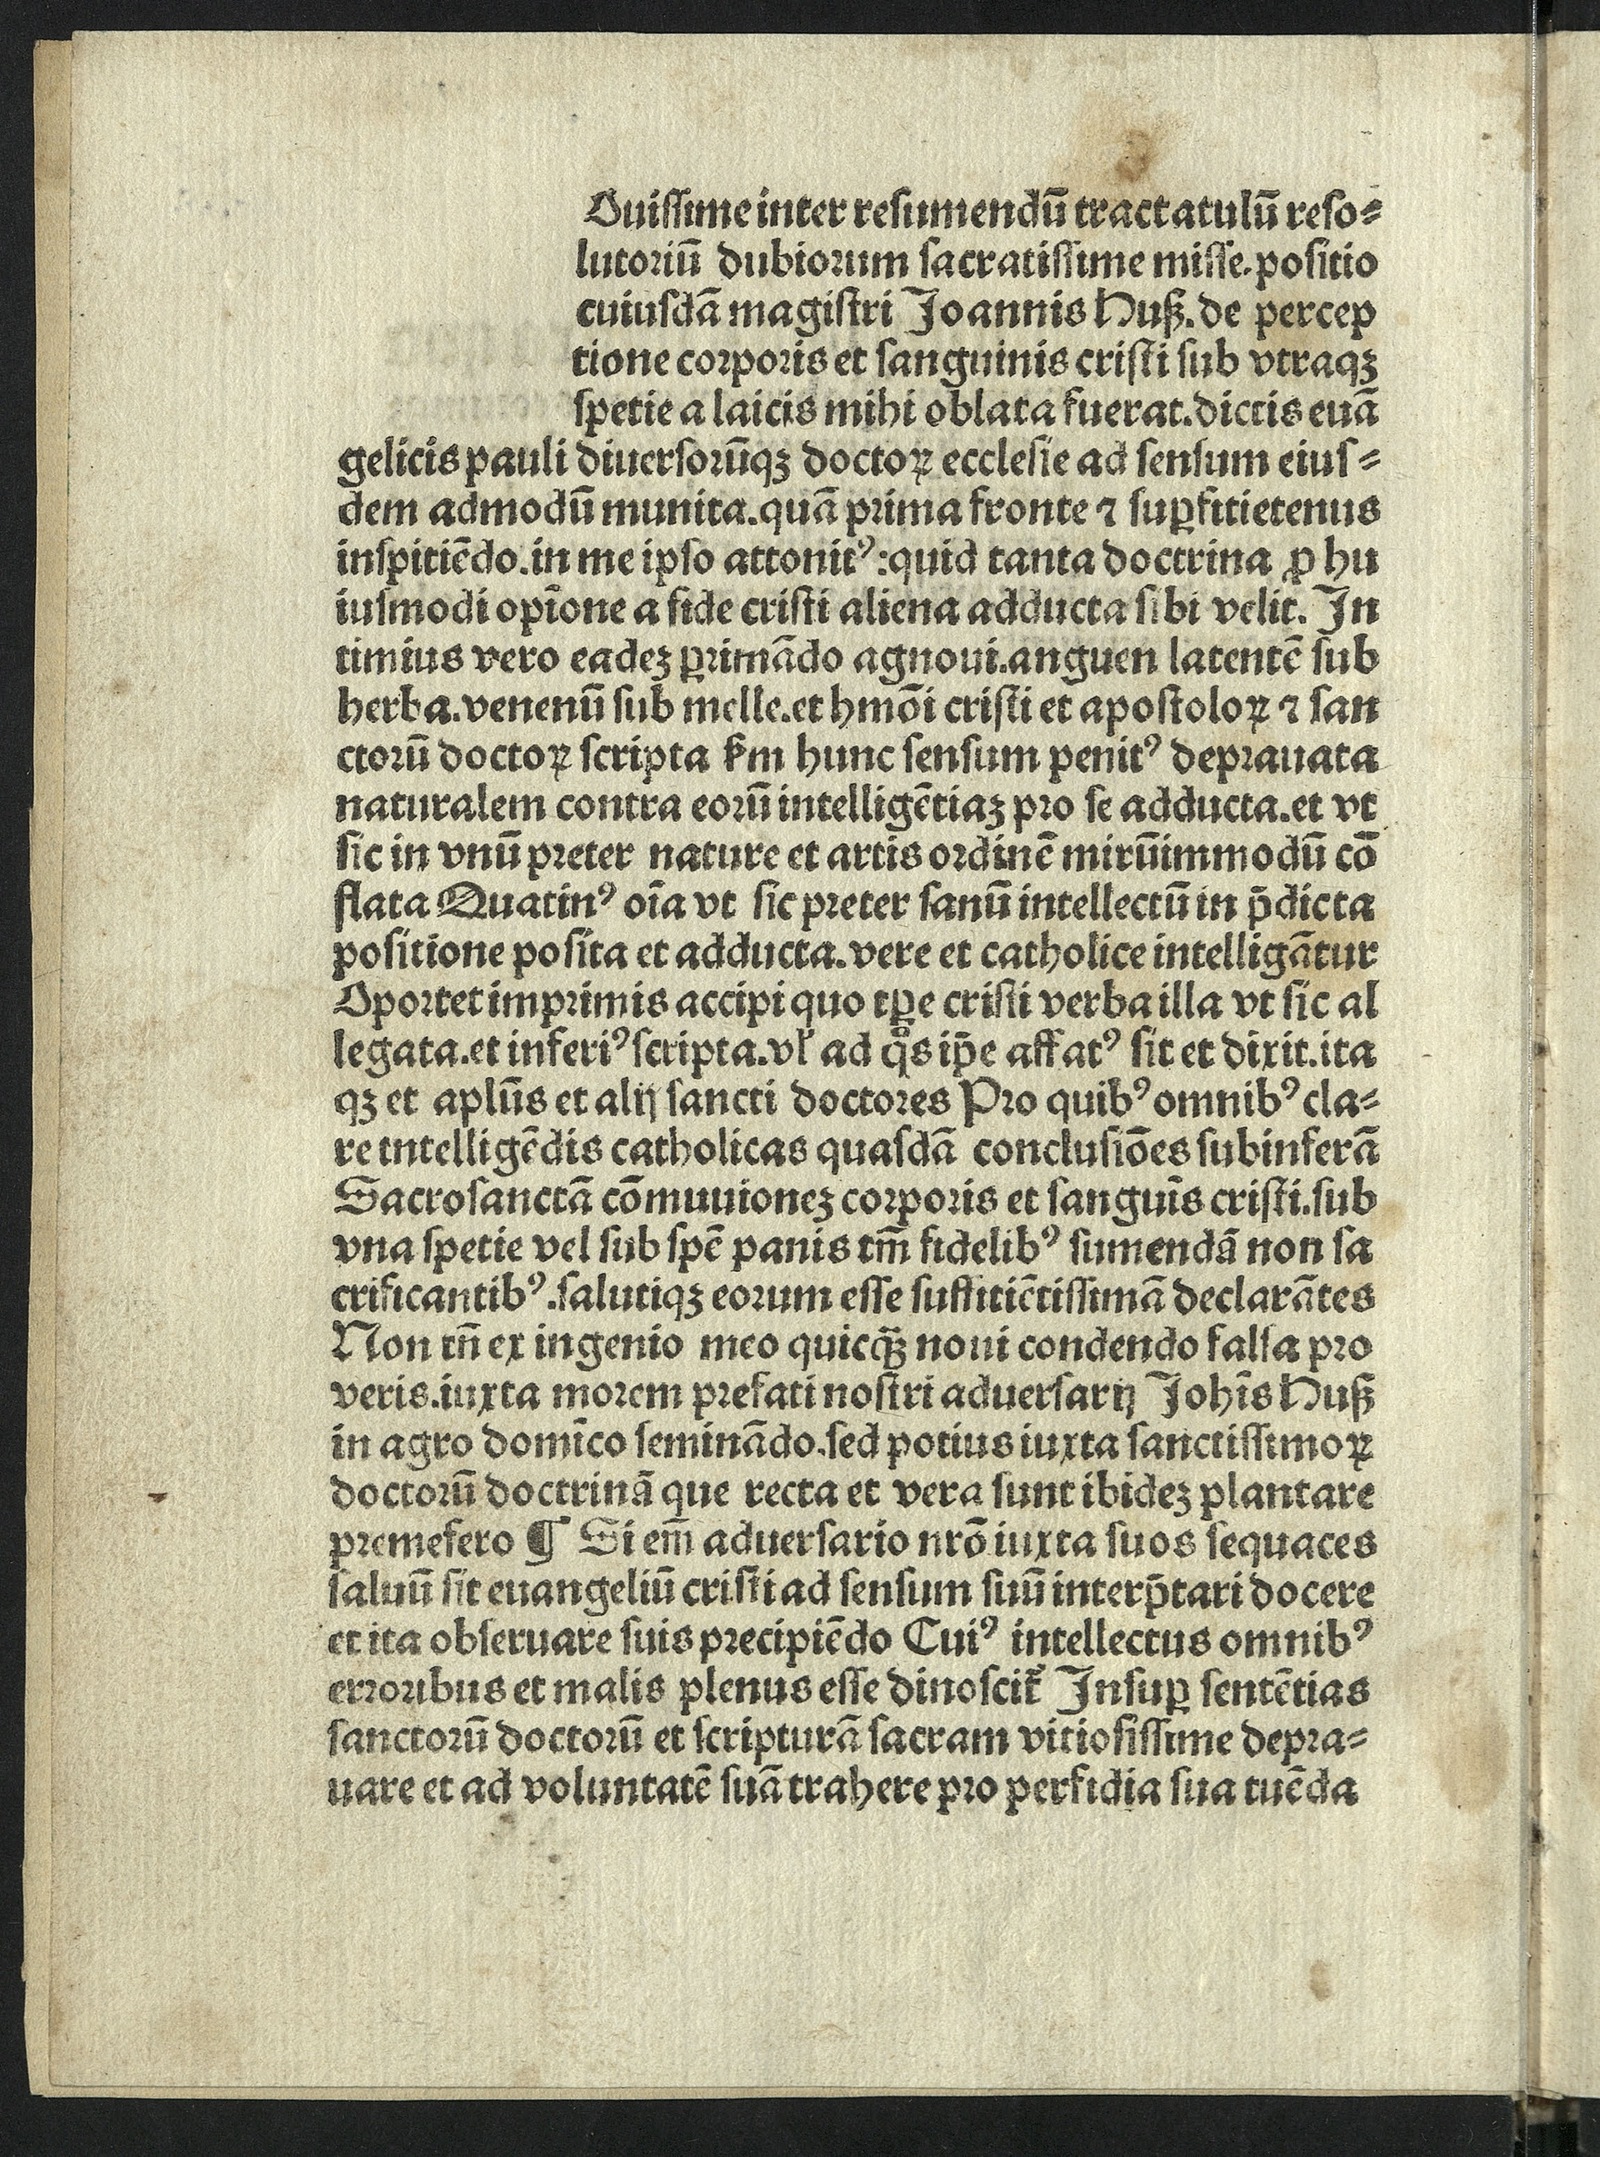 Ouiſſime inter reſumendū tractatulū reſo⸗
lutoriū dubiorum ſacratiſſime miſſe.poſitio
cuiuſdā magiſtri Joannis Huß.de percep
tione corporis et ſanguinis criſti ſub vtraqꝫ
ſpetie a laicis mihi oblata fuerat.dictis euā
gelicis pauli diuerſorūqꝫ doctoꝝ eccleſie ad ſenſum eiuſ⸗
dem admodū munita.quā prima fronte ⁊ suꝑfitietenus
inſpitiēdo.in me ipſo attonitꝰ:quid tanta doctrina ꝓ hu
iuſmodi opīone a fide criſti aliena adducta ſibi velit. In
timius vero eadeꝫ ꝑrimādo agnoui.anguen latentē ſub
herba.venenū ſub melle.et hmōi criſti et apoſtoloꝝ ⁊ ſan
ctorū doctoꝝ ſcripta ẜm hunc ſenſum penitꝰ deprauata
naturalem contra eorū intelligētiaꝫ pro ſe adducta.et vt
ſic in vnū preter nature et artis ordinē mirūimmodū cō
flata Quatinꝰ oīa vt ſic preter ſanū intellectū in p̄dicta
poſitione poſita et adducta.vere et catholice intelligātur
Oportet imprimis accipi quo tꝑe criſti verba illa vt ſic al
legata.et inferiꝰ ſcripta.vl̓ ad qͦs ip̄e affatꝰ ſit et dixit.ita
qꝫ et aplūs et alij ſancti doctores Pro quibꝰ omnibꝰ cla⸗
re tntelligēdis catholicas quaſdā concluſiōes ſubinferā
Sacroſanctā cōmuuioneꝫ corporis et ſanguīs criſti.ſub
vna ſpetie vel ſub ſpē panis tm̄ fidelibꝰ ſumendā non ſa
crificantibꝰ.ſalutiqꝫ eorum eſſe ſuffitiētiſſimā declarātes
Non tn̄ ex ingenio meo quicq̄ꝫ noui condendo falſa pro
veris.iuxta morem prefati noſtri aduerſarij Johīs Huß
in agro domīco ſeminādo.ſed potius iuxta ſanctiſſimoꝝ
doctorū doctrinā que recta et vera ſunt ibideꝫ plantare
premefero ¶ Si em̄ aduerſario nrō iuxta ſuos ſequaces
ſaluū ſit euangeliū criſti ad ſenſum ſuū interp̄tari docere
et ita obſeruare ſuis precipiēdo Cuiꝰ intellectus omnibꝰ
erroribus et malis plenus eſſe dinoſcit᷑ Inſuꝑ ſentētias
ſanctorū doctorū et ſcripturā ſacram vitioſiſſime depra⸗
uare et ad voluntatē ſuā trahere pro perfidia ſua tuēda